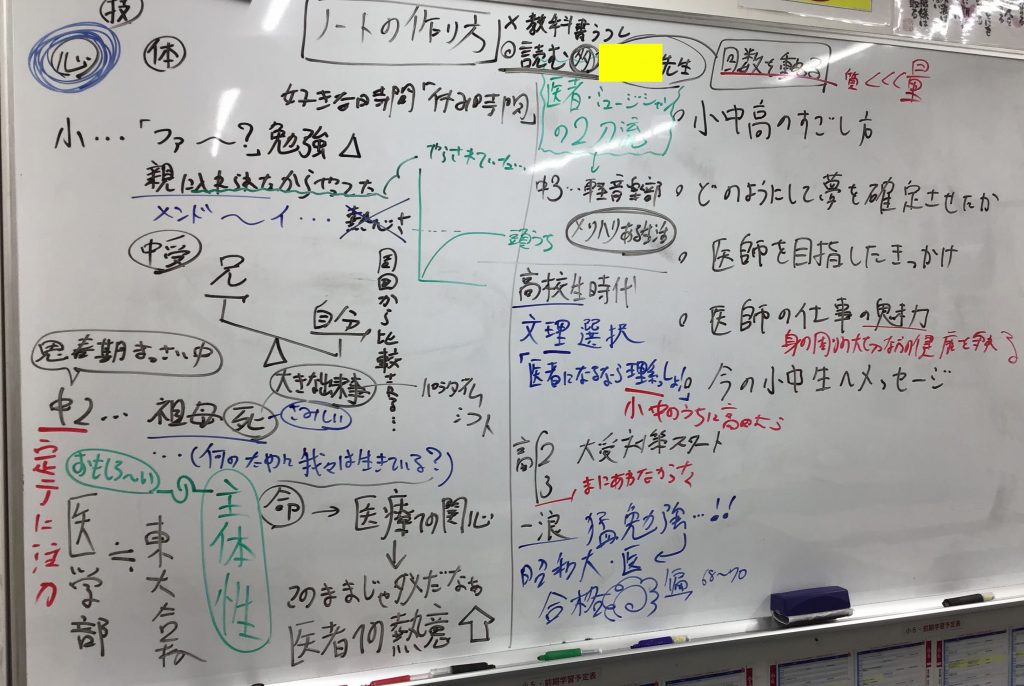 技
心
体
ノートの作り方
× 教科書うつし
◎読む
先生
回数を重ね
質<<<量
好きな時間「休み時間」
医者・ミュージシャン
の2刀流
小…「ファ〜?」勉強 △
親に入れられたからやってた
やらされていた…
メンド〜イ…
頭うち
中受
兄
自分
周囲から比較される…
中3…軽音楽部
メリハリある生活
思春期まっさい中
中2… 祖母死
大きな出来事
さみしい
パラダイムシフト
…(何のために我々は生きている?)
おもしろ〜い
主体性
う余テに注力
医学部
≒
東大合格
命 → 医療への関心
↓
このままじゃダメだなぁ
医者への熱意
高校生時代
文理選択
「医者になるなら理系でしょ!」
小中のうちに高めたら
高2 大受対策スタート
3
まにあわなかった
一浪 猛勉強…!!
昭和大・医
合格
偏 68〜70
小中高のすごし方
どのようにして夢を確定させたか
医師を目指したきっかけ
医師の仕事の魅力
身の周りの大切な方の健康を
今の小中生へメッセージ
小6・前期学習予定表
小5・前期学習予定表